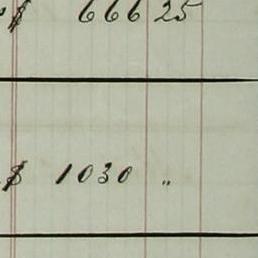 $ 666 25
$ 1030 "